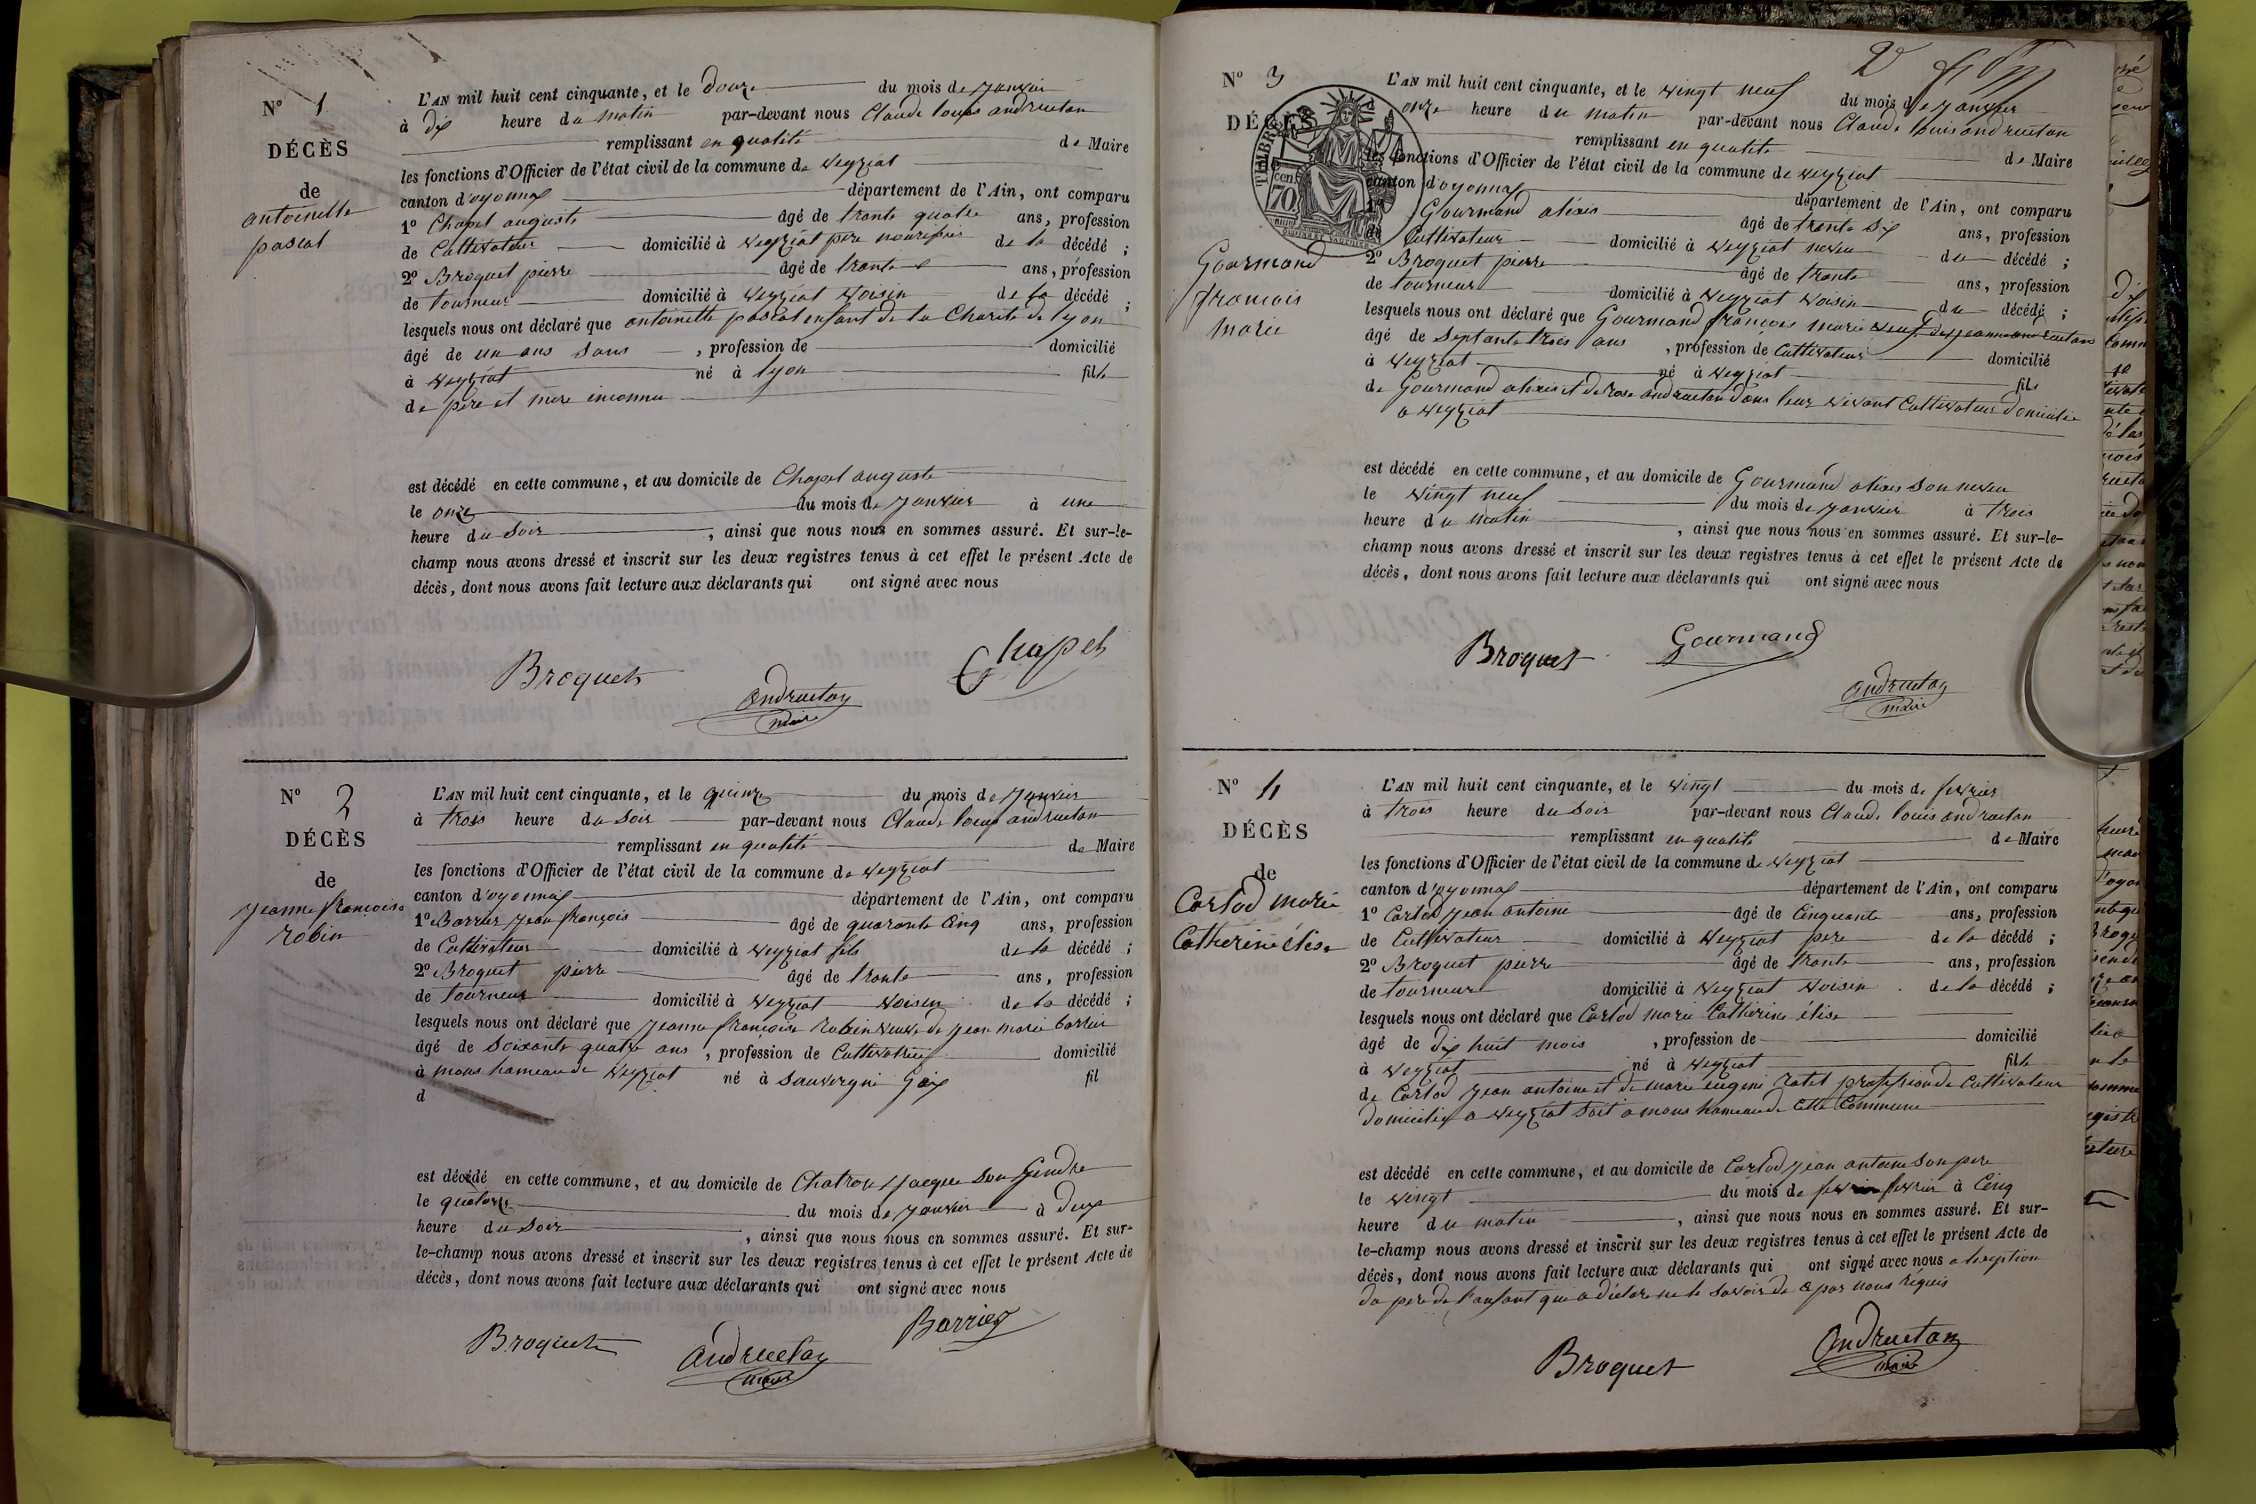 N° 1
DÉCÈS
de
antoinette
pascal
L'AN mil huit cent cinquante, et le douze du mois de janvier
à dix heure du matin par-devant nous Claude louis andruetan
remplissant en qualité de Maire
les fonctions d'Officier de l'état civil de la commune de veyziat
canton d'oyonnax département de l'Ain, ont comparu
1° Chapel auguste âgé de trente quatre ans, profession
de Cultivateur domicilié à veyziat père nourisier de la décédé ;
2° Broquet pierre âgé de trente ans, profession
de tourneur domicilié à veyziat voisin de la décédé ;
lesquels nous ont déclaré que antoinette pascal enfant de la Charité de lyon
âgé de un ans sans , profession de domicilié
à veyziat né à lyon fille
de père et mère inconnu
est décédé en cette commune, et au domicile de Chapel auguste
le onze du mois de janvier à une
heure du soir , ainsi que nous nous en sommes assuré. Et sur-le-
champ nous avons dressé et inscrit sur les deux registres tenus à cet effet le présent Acte de
décès, dont nous avons fait lecture aux déclarants qui ont signé avec nous
Broquet andruetan Chapel
maire
N° 2
DÉCÈS
de
jeanne françoise
robin
L'AN mil huit cent cinquante, et le quinze du mois de janvier
à trois heure du soir par-devant nous Claude louis andruetan
remplissant en qualité de Maire
les fonctions d'Officier de l'état civil de la commune de veyziat
canton d'oyonnax département de l'Ain, ont comparu
1° Barrier jean françois âgé de quarante cinq ans, profession
de Cultivateur domicilié à veyziat fils de la décédé ;
2° Broquet pierre âgé de trente ans, profession
de tourneur domicilié à veyziat voisin de la décédé ;
lesquels nous ont déclaré que jeanne françoise robin veuve de jean marie barrier
âgé de soixante quatre ans , profession de Cultivatrice domicilié
à mons hameau de veyziat né à sauvergni Gex fil
d
est décédé en cette commune, et au domicile de Chatron jacque son gendre
le quatorze du mois de janvier à deux
heure du soir , ainsi que nous nous en sommes assuré. Et sur-
le-champ nous avons dressé et inscrit sur les deux registres tenus à cet effet le présent Acte de
décès, dont nous avons fait lecture aux déclarants qui ont signé avec nous
Broquet andruetan Barrier
maire
N° 3
DÉCÈS
Gourmand
françois
marie
L'AN mil huit cent cinquante, et le vingt neuf du mois de janvier
à onze heure du matin par-devant nous Claude louis andruetan
remplissant en qualité de Maire
les fonctions d'Officier de l'état civil de la commune de veyziat
canton d'oyonnax département de l'Ain, ont comparu
1° Gourmand alexis âgé de trente six ans, profession
de Cultivateur domicilié à veyziat neveu du décédé ;
2° Broquet pierre âgé de trente ans, profession
de tourneur domicilié à veyziat voisin du décédé ;
lesquels nous ont déclaré que Gourmand françois marie veuf de jeanne andruetan
âgé de septante trois ans , profession de Cultivateur domicilié
à veyziat né à veyziat fils
de Gourmand alexis et de rose andruetan dans leur vivant Cultivateur domicilié
a veyziat
est décédé en cette commune, et au domicile de Gourmand alexis son neveu
le vingt neuf du mois de janvier à trois
heure du matin , ainsi que nous nous en sommes assuré. Et sur-le-
champ nous avons dressé et inscrit sur les deux registres tenus à cet effet le présent Acte de
décès, dont nous avons fait lecture aux déclarants qui ont signé avec nous
Broquet Gourmand andruetan
maire
N° 4
DÉCÈS
de
Carlod marie
Catherine élise
L'AN mil huit cent cinquante, et le vingt du mois de fevrier
à trois heure du soir par-devant nous Claude louis andruetan
remplissant en qualité de Maire
les fonctions d'Officier de l'état civil de la commune de veyziat
canton d'oyonnax département de l'Ain, ont comparu
1° Carlod jean antoine âgé de cinquante ans, profession
de Cultivateur domicilié à veyziat père de la décédé ;
2° Broquet pierre âgé de trente ans, profession
de tourneur domicilié à veyziat voisin de la décédé ;
lesquels nous ont déclaré que Carlod marie Catherine élise
âgé de dix huit mois , profession de domicilié
à veyziat né à veyziat fille
de Carlod jean antoine et de marie eugeni ratel profession de Cultivateur
domiciliés a veyziat soit a mons hameau de cette Commune
est décédé en cette commune, et au domicile de Carlod jean antoine son père
le vingt du mois de fevrier à cinq
heure du matin , ainsi que nous nous en sommes assuré. Et sur-
le-champ nous avons dressé et inscrit sur les deux registres tenus à cet effet le présent Acte de
décès, dont nous avons fait lecture aux déclarants qui ont signé avec nous a lexeption
du père de l'enfant que a déclaré ne le savoir de ce par nous réquis
Broquet andruetan
maire